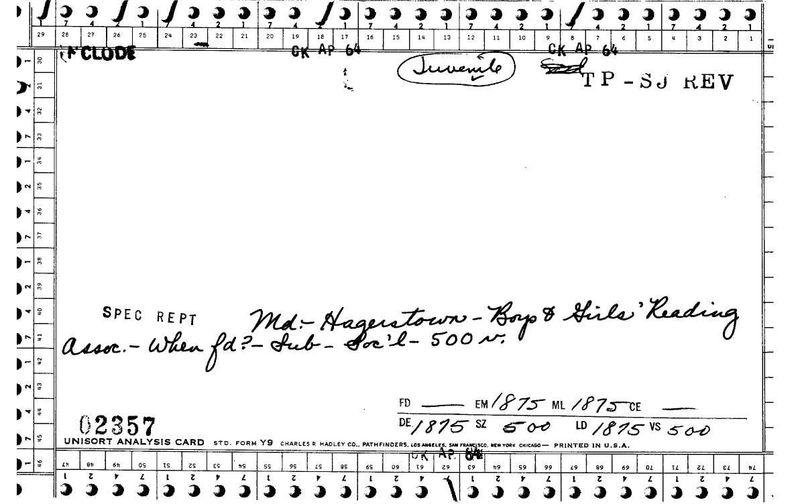 7 4 2 1 7 4 2 1 7 4 2 1 7 4 2 1 7 4 2 1 7 4 2 1 7 4 2 1
29 28 27 26 25 24 23 22 21 20 19 18 17 16 15 14 13 12 11 10 9 8 7 6 5 4 3 2 1
CLODE CK AP 64 CK AP 64
Juvenile
TP-SJ REV
30
31
32
33
34
35
36
37
38
39
SPEC REPT Md.- Hagerstown - Boys & Girls' Reading
40
41
Assoc. - When fd? - Sub - Soc'l - 500 v.
42
43
FD — EM 1875 ML 1875 CE —
44
DE 1875 SZ 500 LD 1875 VS 500
02357
45
UNISORT ANALYSIS CARD STD. FORM Y9 CHARLES R. HADLEY CO., PATHFINDERS, LOS ANGELES, SAN FRANCISCO, NEW YORK, CHICAGO — PRINTED IN U.S.A.
CK AP 64
46 47 48 49 50 51 52 53 54 55 56 57 58 59 60 61 62 63 64 65 66 67 68 69 70 71 72 73 74